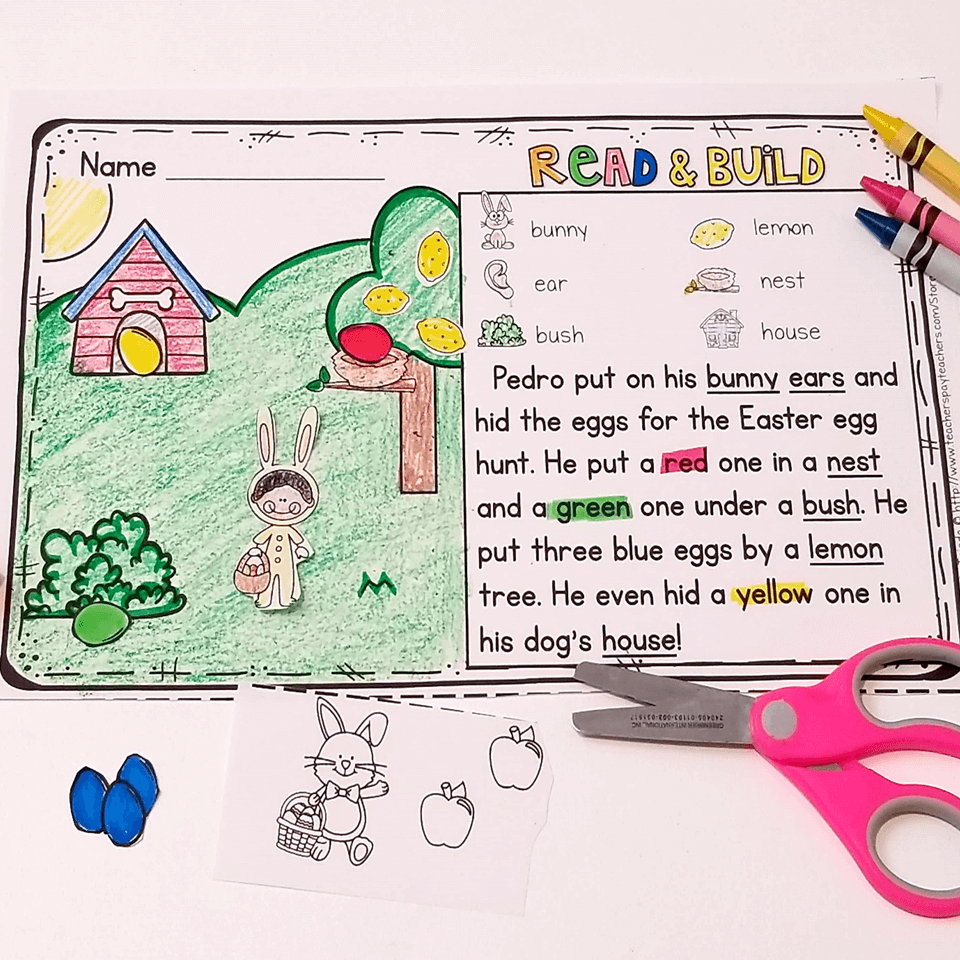 Name
READ & BUILD
bunny
lemon
ear
nest
bush
house
Pedro put on his bunny ears and
hid the eggs for the Easter egg
hunt. He put a red one in a nest
and a green one under a bush. He
put three blue eggs by a lemon
tree. He even hid a yellow one in
his dog's house!
http://www.teacherspayteachers.com/Stor